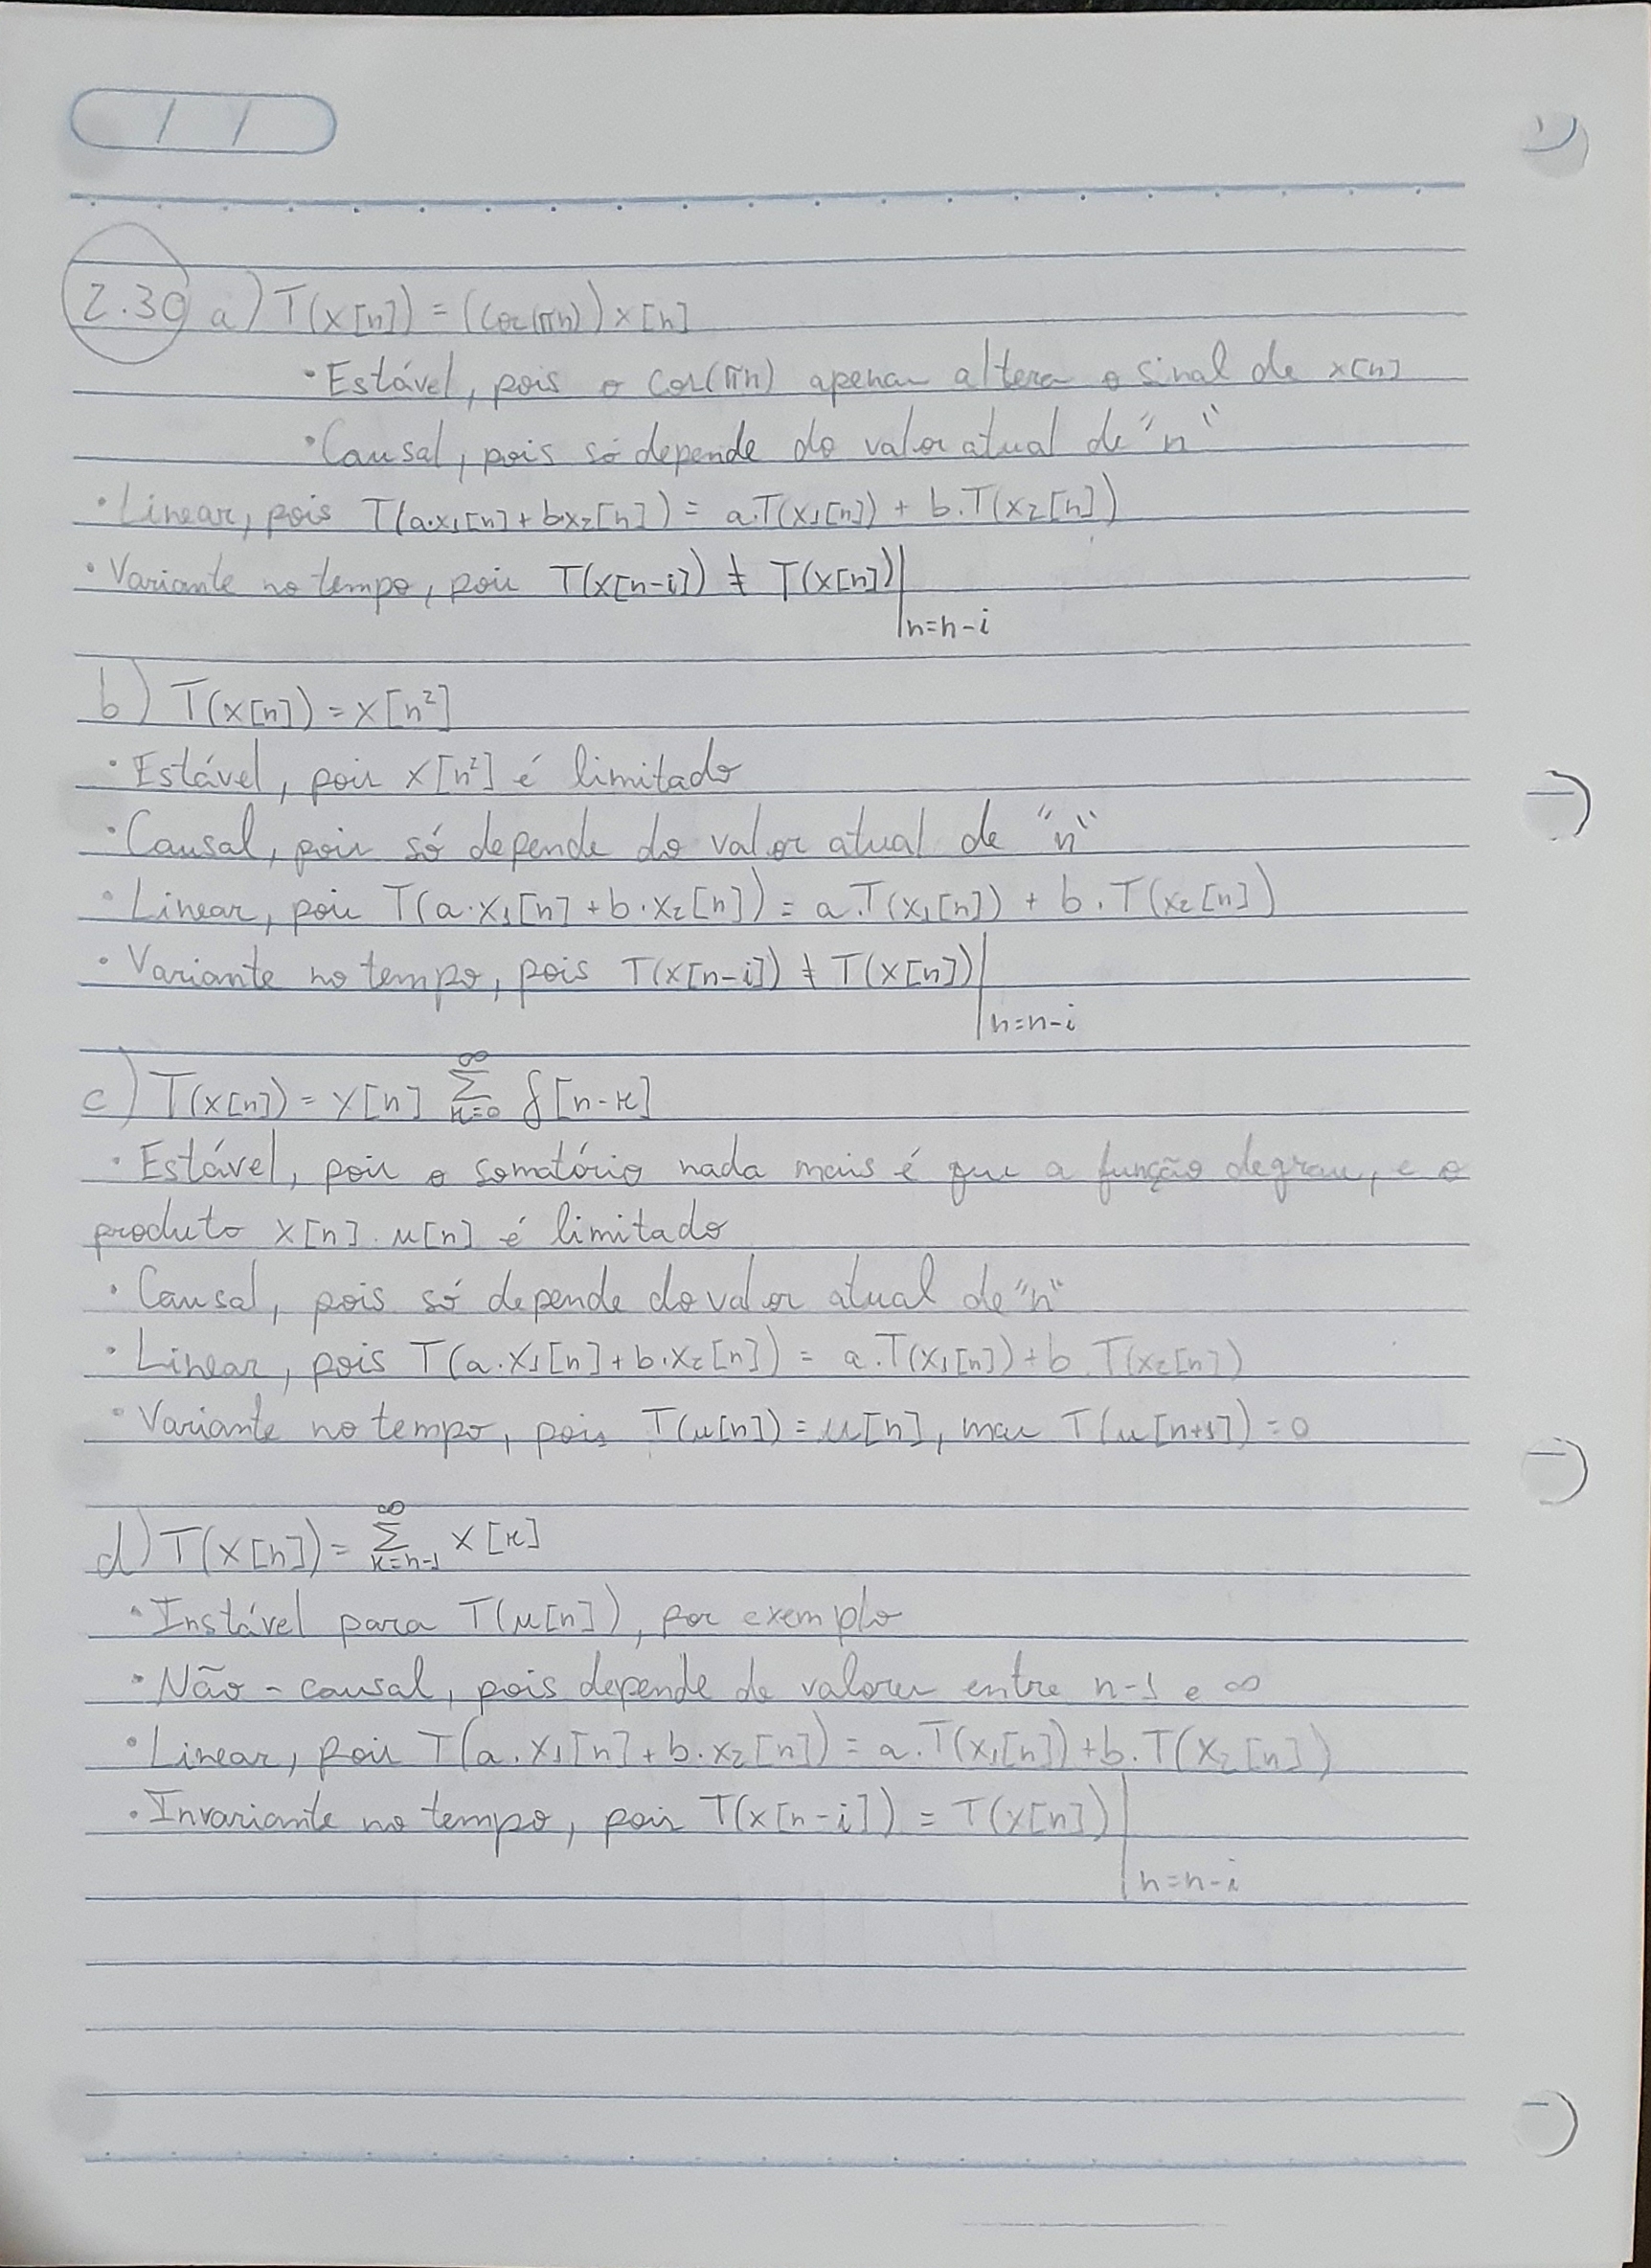 / /
2.30 a) T(x[n]) = (cos(πn)) x[n]
• Estável, pois o cos(πn) apenas altera o sinal de x[n]
• Causal, pois só depende do valor atual de "n"
• Linear, pois T(a.x₁[n] + b.x₂[n]) = a.T(x₁[n]) + b.T(x₂[n])
• Variante no tempo, pois T(x[n-i]) ≠ T(x[n])|
n=n-i
b) T(x[n]) = x[n²]
• Estável, pois x[n²] é limitado
• Causal, pois só depende do valor atual de "n"
• Linear, pois T(a.x₁[n] + b.x₂[n]) = a.T(x₁[n]) + b.T(x₂[n])
• Variante no tempo, pois T(x[n-i]) ≠ T(x[n])|
n=n-i
c) T(x[n]) = x[n] ∞Σκ=0 δ[n-κ]
• Estável, pois o somatório nada mais é que a função degrau, e o
produto x[n].μ[n] é limitado
• Causal, pois só depende do valor atual de "n"
• Linear, pois T(a.x₁[n] + b.x₂[n]) = a.T(x₁[n]) + b.T(x₂[n])
• Variante no tempo, pois T(μ[n]) = μ[n], mas T(μ[n+1]) = 0
d) T(x[n]) = ∞Σκ=n-1 x[κ]
• Instável para T(μ[n]), por exemplo
• Não-causal, pois depende de valores entre n-1 e ∞
• Linear, pois T(a.x₁[n] + b.x₂[n]) = a.T(x₁[n]) + b.T(x₂[n])
• Invariante no tempo, pois T(x[n-i]) = T(x[n])|
n=n-i